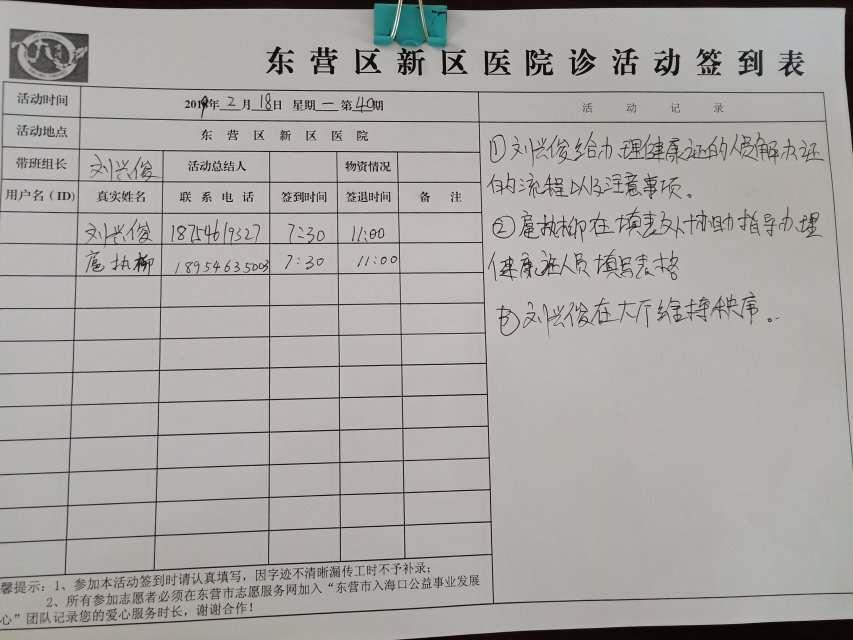 东营区新区医院诊活动签到表
活动时间 2019年2月18日 星期一 第40期 活动记录
活动地点 东营区新区医院
带班组长 刘兴俊 活动总结人 物资情况
用户名（ID） 真实姓名 联系电话 签到时间 签退时间 备注
刘兴俊 18754619327 7:30 11:00
扈执柳 18954635003 7:30 11:00
①刘兴俊给办理健康证的人员解办证
的流程以及注意事项。
②扈执柳在填表处协助指导办理
健康证人员填写表格
刘兴俊在大厅维持秩序。
馨提示：1、参加本活动签到时请认真填写，因字迹不清晰漏传工时不予补录；
2、所有参加志愿者必须在东营市志愿服务网加入“东营市入海口公益事业发展
心”团队记录您的爱心服务时长，谢谢合作！